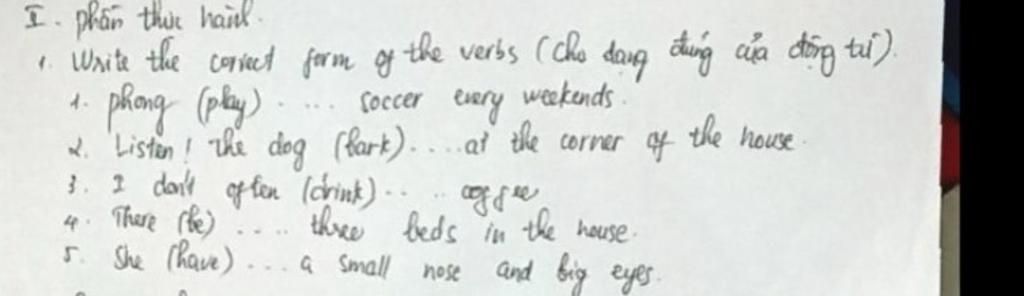 I. phần thực hành.
1. Write the correct form of the verbs (cho dạng đúng của động từ).
1. phong (play) . ... soccer every weekends.
2. Listen! The dog (bark)....at the corner of the house.
3. I don't often (drink).. .. coffee
4. There (be) .... three beds in the house.
5. She (have) ... a small nose and big eyes.